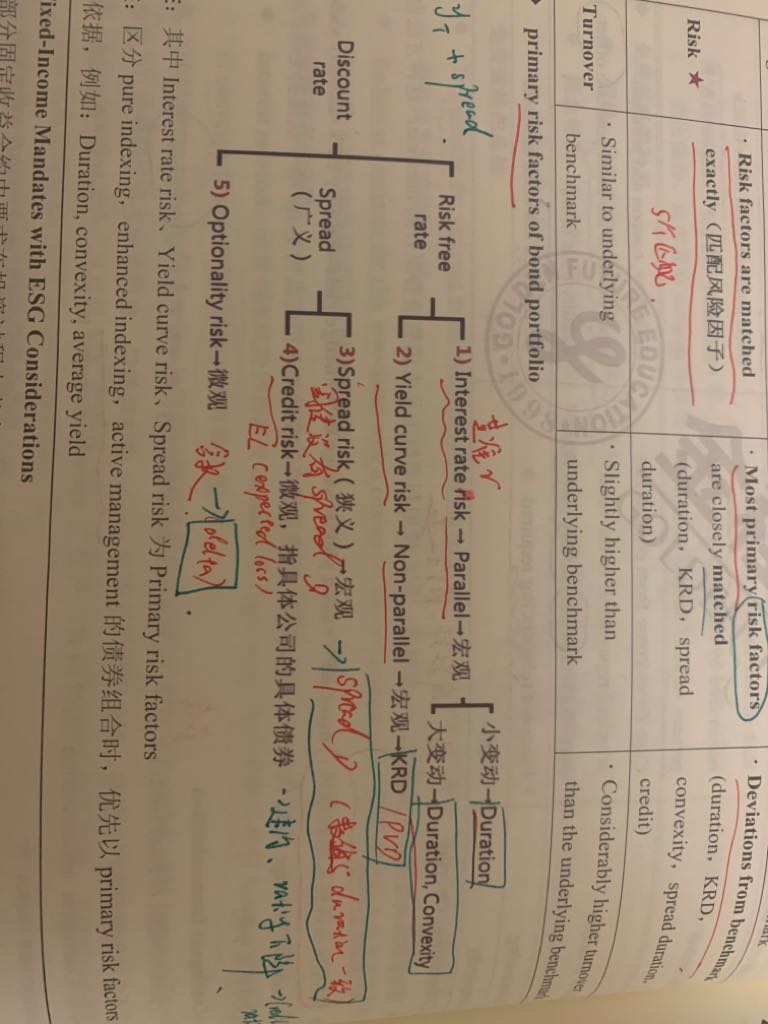 Risk ★
· Risk factors are matched
exactly（匹配风险因子）
· Most primary risk factors
are closely matched
(duration, KRD, spread
duration)
· Deviations from benchmark
(duration, KRD,
convexity, spread duration,
credit)
Turnover
· Similar to underlying
benchmark
· Slightly higher than
underlying benchmark
· Considerably higher turnover
than the underlying benchmark
primary risk factors of bond portfolio
+ spread
Discount
rate
Risk free
rate
1) Interest rate risk → Parallel→宏观
小变动→Duration
大变动→Duration, Convexity
2) Yield curve risk → Non-parallel →宏观→KRD / PVD
Spread
（广义）
3)Spread risk（狭义）→宏观 → spread D
duration 一致
4)Credit risk→微观，指具体公司的具体债券
EL (expected loss)
5) Optionality risk→微观
→ delta
其中 Interest rate risk、Yield curve risk、Spread risk 为 Primary risk factors
区分 pure indexing，enhanced indexing，active management 的债券组合时，优先以 primary risk factors
依据，例如：Duration, convexity, average yield
ixed-Income Mandates with ESG Considerations